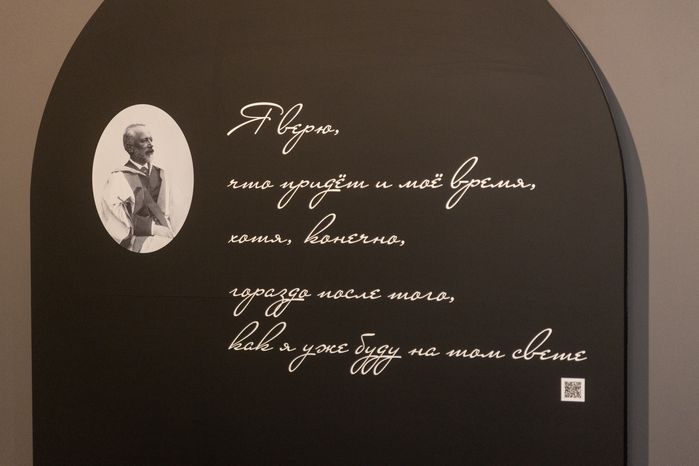 Я верю,
что придёт и моё время,
хотя, конечно,
гораздо после того,
как я уже буду на том свете